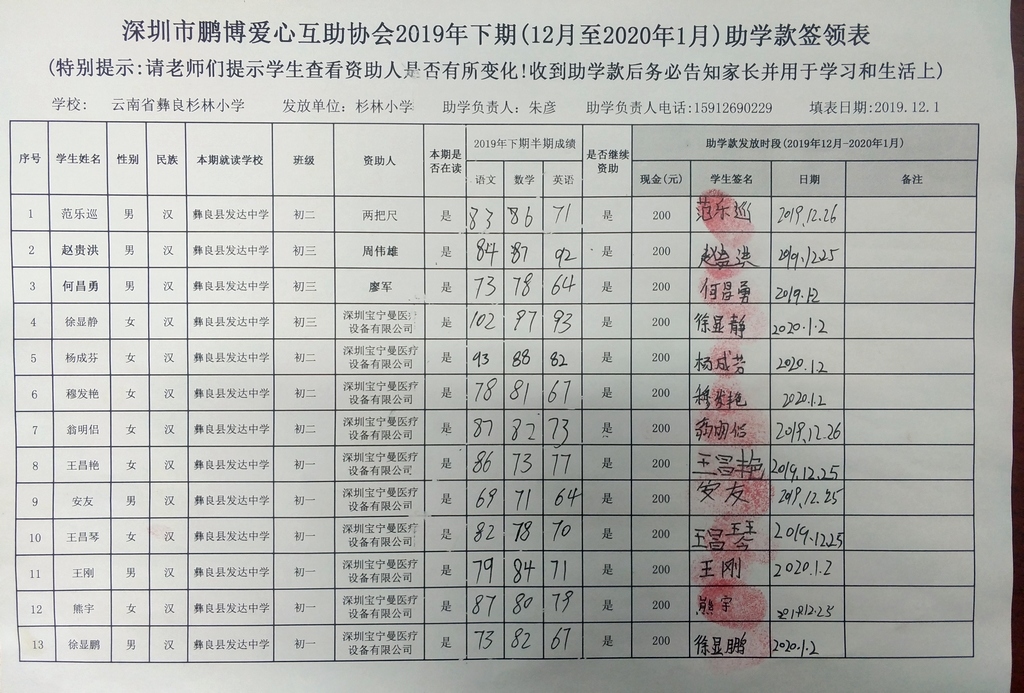 深圳市鹏博爱心互助协会2019年下期(12月至2020年1月)助学款签领表
(特别提示:请老师们提示学生查看资助人是否有所变化!收到助学款后务必告知家长并用于学习和生活上)
学校: 云南省彝良杉林小学 发放单位: 杉林小学 助学负责人: 朱彦 助学负责人电话:15912690229 填表日期:2019.12.1
序号 学生姓名 性别 民族 本期就读学校 班级 资助人 本期是否在读 2019年下期半期成绩 是否继续资助 助学款发放时段(2019年12月-2020年1月)
语文 数学 英语 现金(元) 学生签名 日期 备注
1 范乐巡 男 汉 彝良县发达中学 初二 两把尺 是 83 86 71 是 200 范乐巡 2019.12.26
2 赵贵洪 男 汉 彝良县发达中学 初三 周伟雄 是 84 87 92 是 200 赵贵洪 2019.12.25
3 何昌勇 男 汉 彝良县发达中学 初三 廖军 是 73 78 64 是 200 何昌勇 2019.12
4 徐显静 女 汉 彝良县发达中学 初三 深圳宝宁曼医疗设备有限公司 是 102 97 93 是 200 徐显静 2020.1.2
5 杨成芬 女 汉 彝良县发达中学 初二 深圳宝宁曼医疗设备有限公司 是 93 88 82 是 200 杨成芬 2020.1.2
6 穆发艳 女 汉 彝良县发达中学 初二 深圳宝宁曼医疗设备有限公司 是 78 81 67 是 200 穆发艳 2020.1.2
7 翁明侣 女 汉 彝良县发达中学 初二 深圳宝宁曼医疗设备有限公司 是 87 82 73 是 200 翁明侣 2019.12.26
8 王昌艳 女 汉 彝良县发达中学 初一 深圳宝宁曼医疗设备有限公司 是 86 73 77 是 200 王昌艳 2019.12.25
9 安友 男 汉 彝良县发达中学 初一 深圳宝宁曼医疗设备有限公司 是 69 71 64 是 200 安友 2019.12.25
10 王昌琴 女 汉 彝良县发达中学 初一 深圳宝宁曼医疗设备有限公司 是 82 78 70 是 200 王昌琴 2019.12.25
11 王刚 男 汉 彝良县发达中学 初一 深圳宝宁曼医疗设备有限公司 是 79 84 71 是 200 王刚 2020.1.2
12 熊宇 女 汉 彝良县发达中学 初一 深圳宝宁曼医疗设备有限公司 是 87 80 79 是 200 熊宇
13 徐显鹏 男 汉 彝良县发达中学 初一 深圳宝宁曼医疗设备有限公司 是 73 82 67 是 200 徐显鹏 2020.1.2